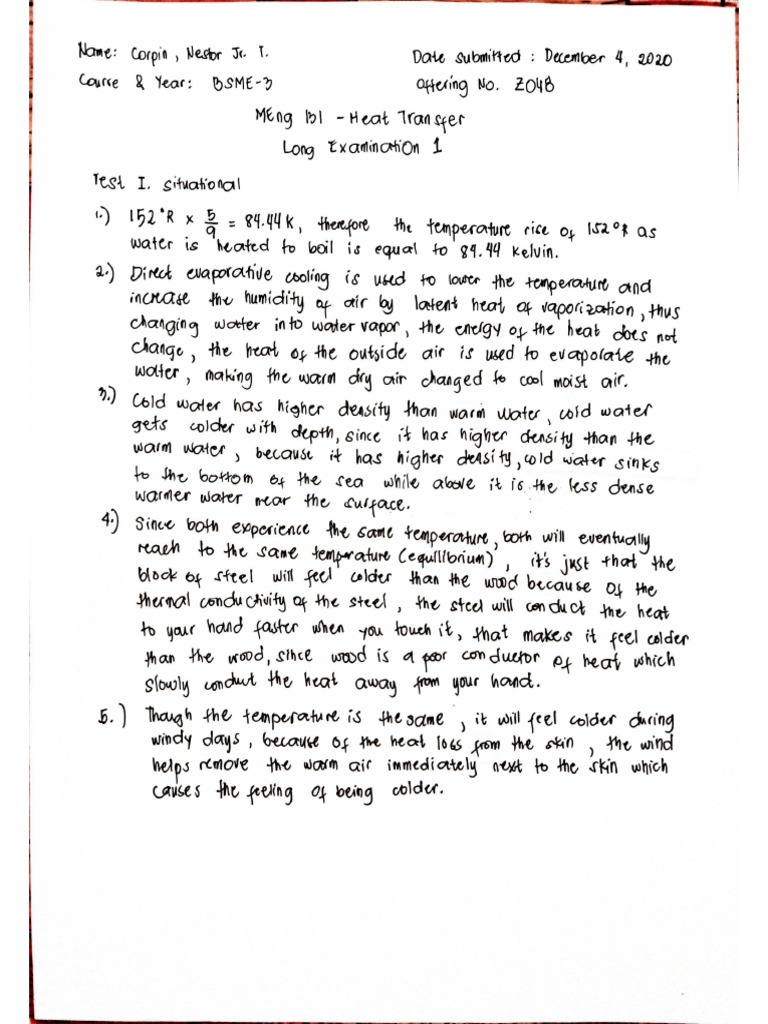 Name: Corpin, Nestor Jr. T. Date submitted: December 4, 2020
Course & Year: BSME-3 Offering No. Z048
MEng 131 - Heat Transfer
Long Examination 1
Test I. Situational
1.) 152°R x 5/9 = 84.44 K, therefore the temperature rise of 152°R as
water is heated to boil is equal to 84.44 kelvin.
2.) Direct evaporative cooling is used to lower the temperature and
increase the humidity of air by latent heat of vaporization, thus
changing water into water vapor, the energy of the heat does not
change, the heat of the outside air is used to evaporate the
water, making the warm dry air changed to cool moist air.
3.) Cold water has higher density than warm water, cold water
gets colder with depth, since it has higher density than the
warm water, because it has higher density, cold water sinks
to the bottom of the sea while above it is the less dense
warmer water near the surface.
4.) Since both experience the same temperature, both will eventually
reach to the same temperature (equilibrium), it's just that the
block of steel will feel colder than the wood because of the
thermal conductivity of the steel, the steel will conduct the heat
to your hand faster when you touch it, that makes it feel colder
than the wood, since wood is a poor conductor of heat which
slowly conduct the heat away from your hand.
5.) Though the temperature is the same, it will feel colder during
windy days, because of the heat loss from the skin, the wind
helps remove the warm air immediately next to the skin which
causes the feeling of being colder.